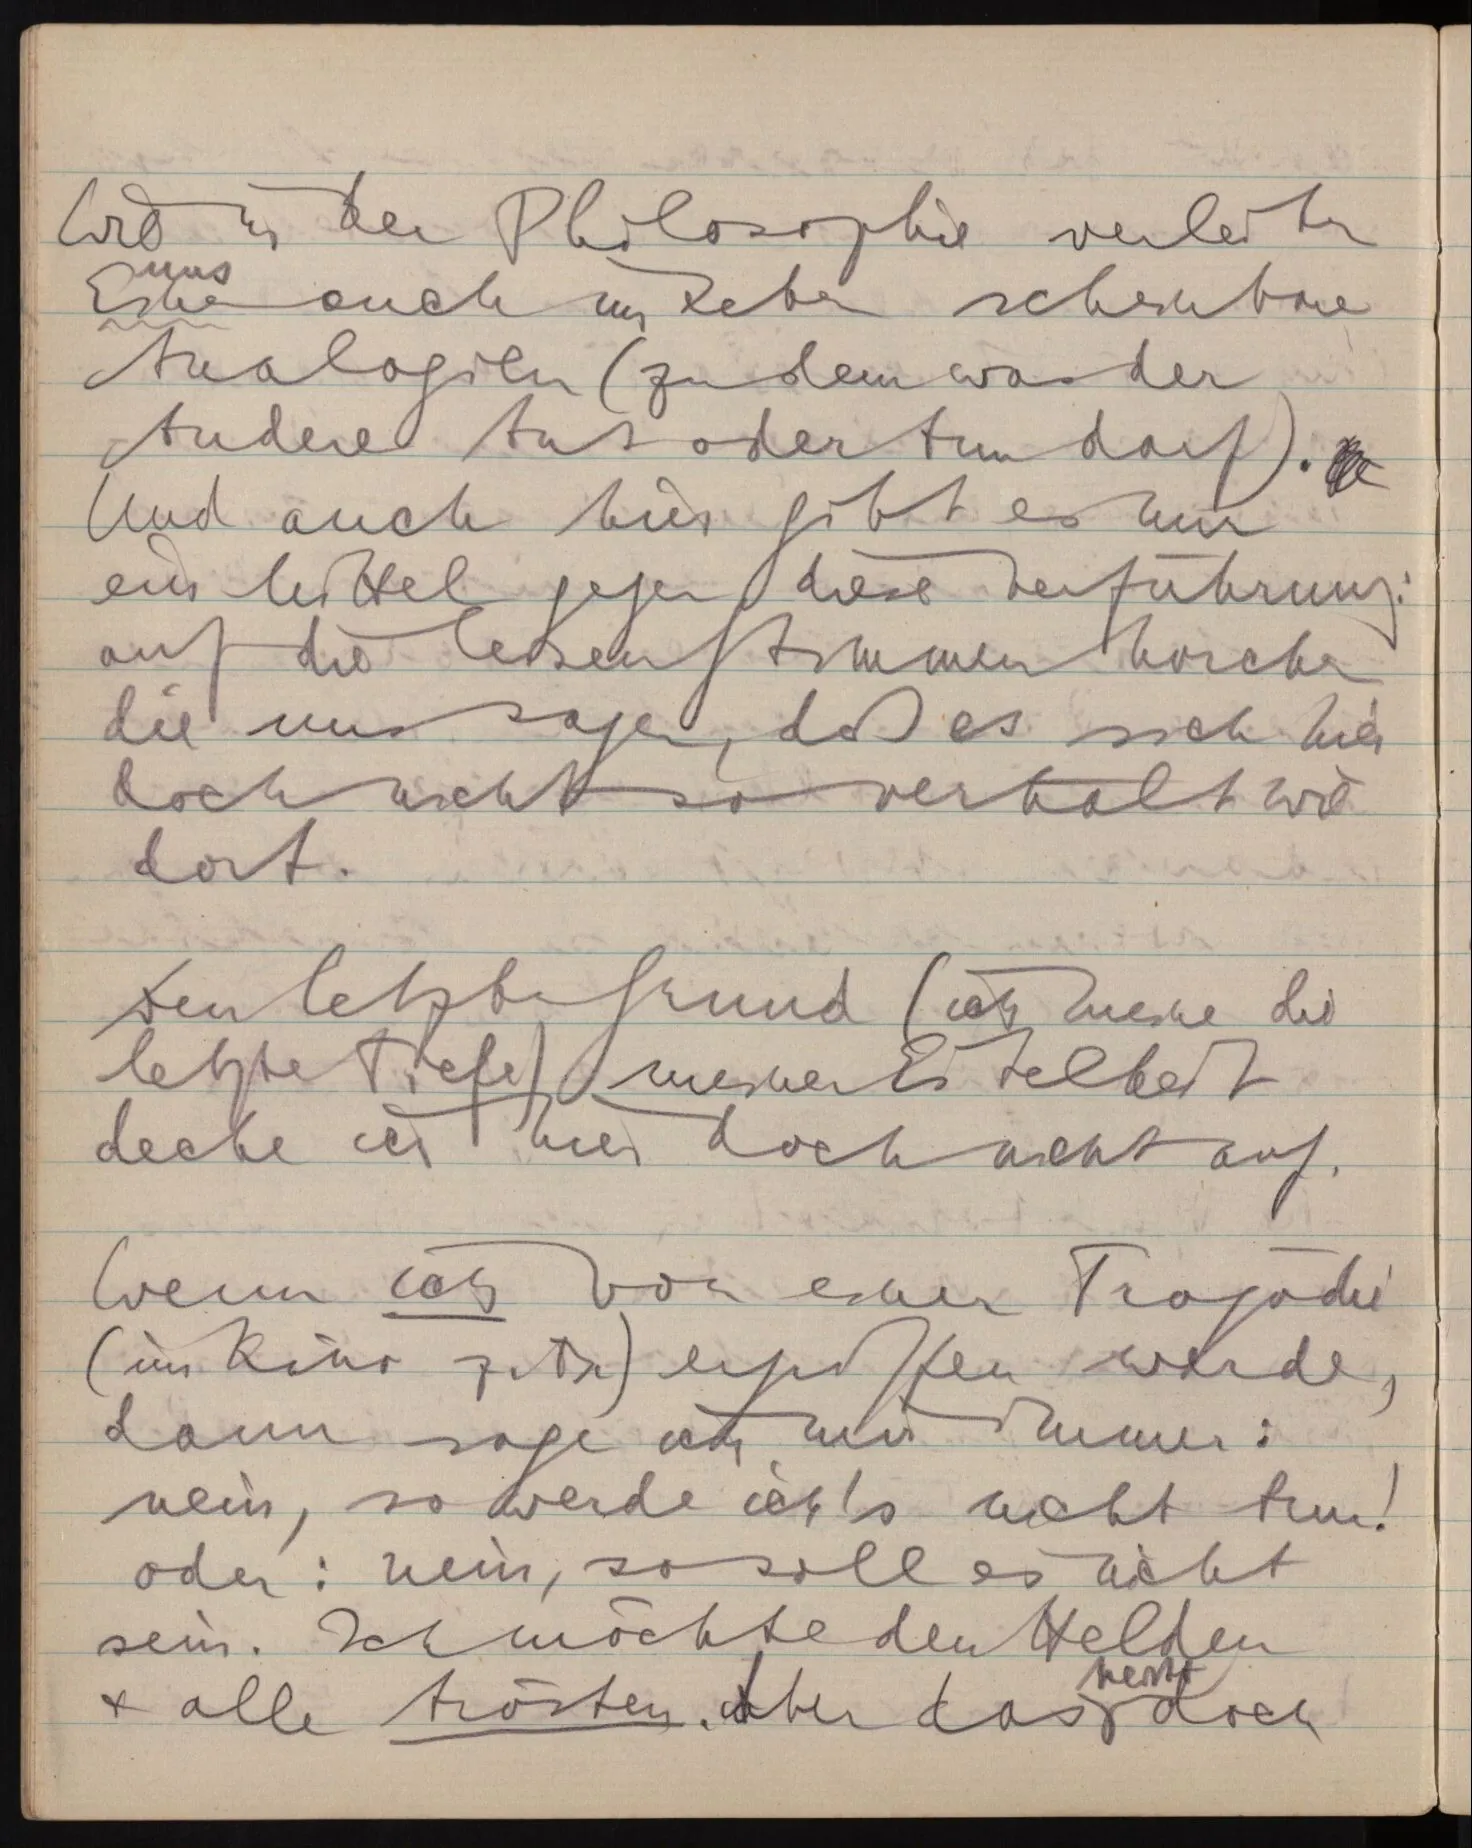 Wie in der Philosophie verleiten
uns
Einen auch im Leben scheinbare
Analogien (zu dem was der
Andere tut oder tun darf).
Und auch hier gibt es nur
ein Mittel gegen diese Verführung:
auf die leisen Stimmen horchen
die uns sagen, daß es sich hier
doch nicht so verhält wie
dort.
Den letzten Grund (ich meine die
letzte Tiefe) meiner Eitelkeit
decke ich hier doch nicht auf.
Wenn ich von einer Tragödie
(im Kino z.B.) ergriffen werde,
dann sage ich mir immer:
nein, so werde ich's nicht tun!
oder: nein, so soll es nicht
sein. Ich möchte den Helden
heißt
+ alle trösten. Aber das doch